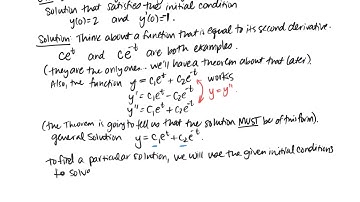 Solution that satisfies the initial condition
y(0)=2 and y'(0)=1.
Solution: Think about a function that is equal to its second derivative.
ce^t and ce^-t are both examples.
(they are the only ones... we'll have a theorem about that later)
Also, the function y = c₁e^t + c₂e^-t works
y' = c₁e^t - c₂e^-t
y = y''
y'' = c₁e^t + c₂e^-t
(the Theorem is going to tell us that the solution MUST be of this form).
general Solution y = c₁e^t + c₂e^-t.
to find a particular solution, we will use the given initial conditions
to solve